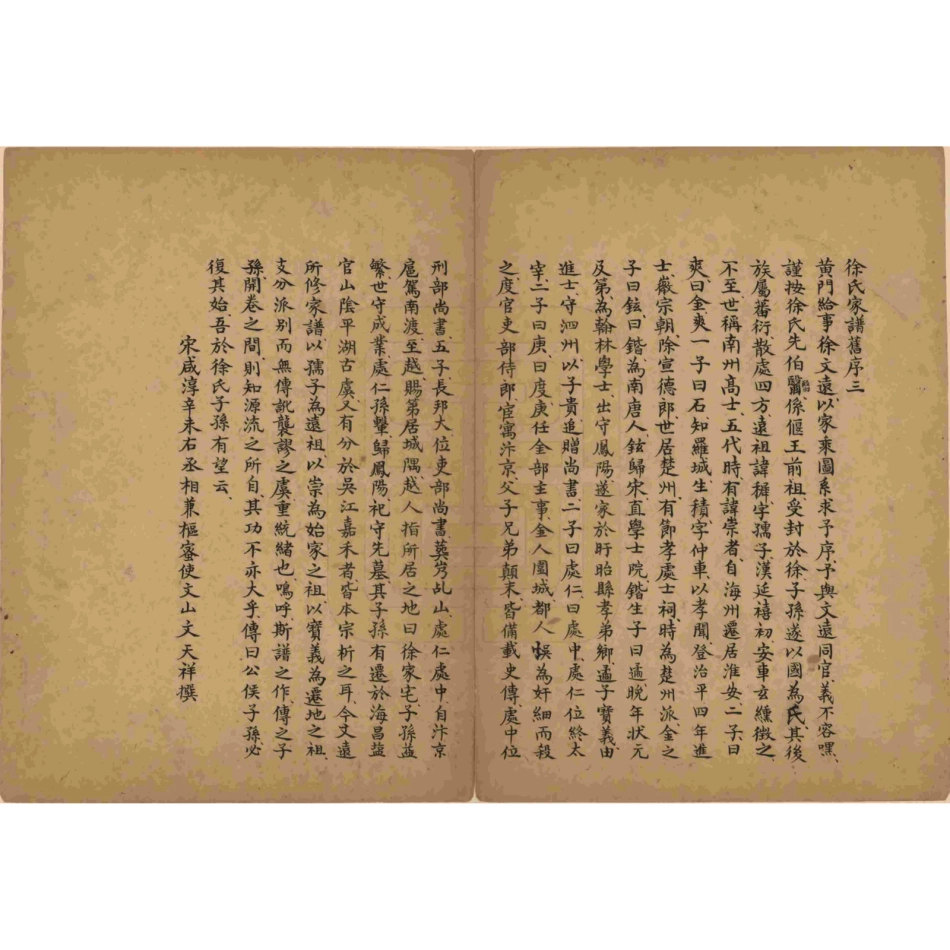 徐氏家譜舊序三
黃門給事徐文遠以家乘圖系求予序予與文遠同官義不容嘿
謹按徐氏先伯翳係偃王前祖受封於徐子孫遂以國為氏其後
族屬蕃衍散處四方遠祖諱穉字孺子漢延禧初安車玄纁徵之
不至世稱南州高士五代時有諱崇者自海州遷居淮安二子曰
爽曰金爽一子曰石知羅城生積字仲車以孝聞登治平四年進
士徽宗朝除宣德郎世居楚州有節孝處士祠時為楚州派金之
子曰鉉曰鍇為南唐人鉉歸宋直學士院鍇生子曰遹晚年狀元
及第為翰林學士出守鳳陽遂家於盱眙縣孝弟鄉遹子寶義由
進士守泗州以子貴追贈尚書二子曰處仁曰處中處仁位終太
宰二子曰庚曰度庚任金部主事金人圍城都人悞為奸細而殺
之度官吏部侍郎宦寓汴京父子兄弟顛末皆備載史傳處中位
刑部尚書五子長邦大位吏部尚書葬芕乩山處仁處中自汴京
扈駕南渡至越賜第居城隅越人指所居之地曰徐家宅子孫益
繁世守成業處仁孫鞏歸鳳陽祀守先墓其子孫有遷於海昌盐
官山陰平湖古虞又有分於吳江嘉禾者皆本宗析之耳今文遠
所修家譜以孺子為遠祖以崇為始家之祖以寶義為遷地之祖
支分派別而無傳訛襲謬之虞重統緒也嗚呼斯譜之作傳之子
孫開卷之間則知源流之所自其功不亦大乎傳曰公侯子孫必
復其始吾於徐氏子孫有望云
宋咸淳辛未右丞相兼樞密使文山文天祥撰